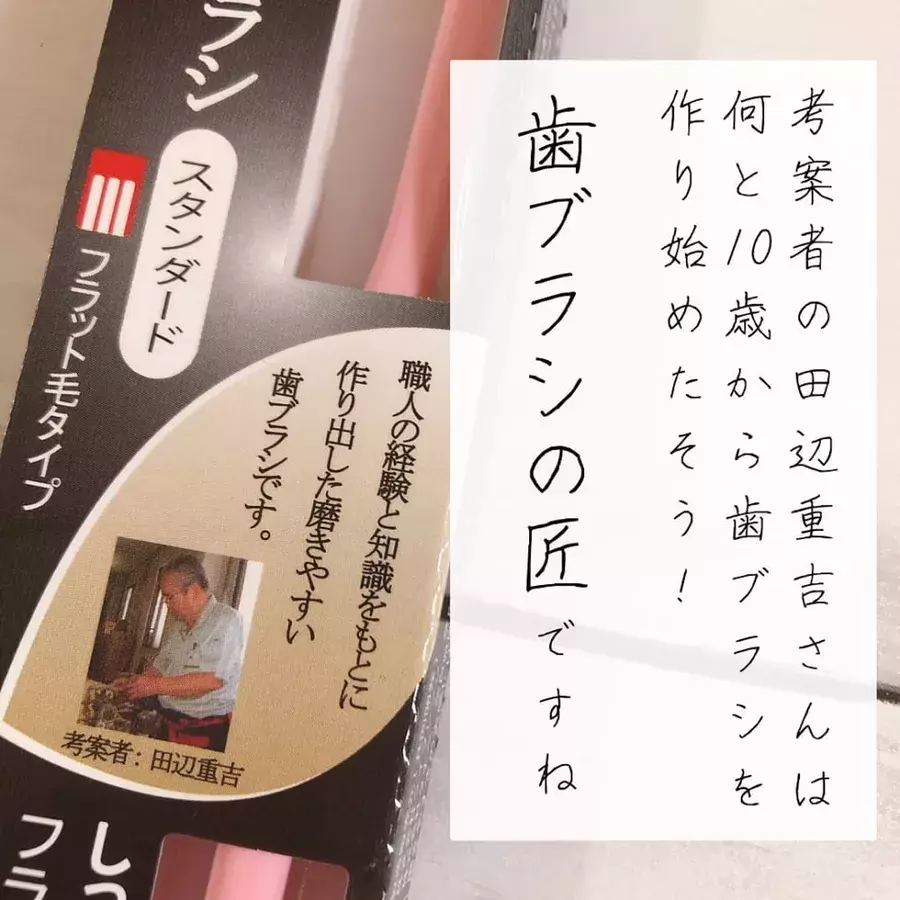 考案者の田辺重吉さんは
何と10歳から歯ブラシを
作り始めたそう!
歯ブラシの匠ですね
ラシ
スタンダード
フラット毛タイプ
職人の経験と知識をもとに
作り出した磨きやすい
歯ブラシです。
考案者:田辺重吉
しっ
フラ